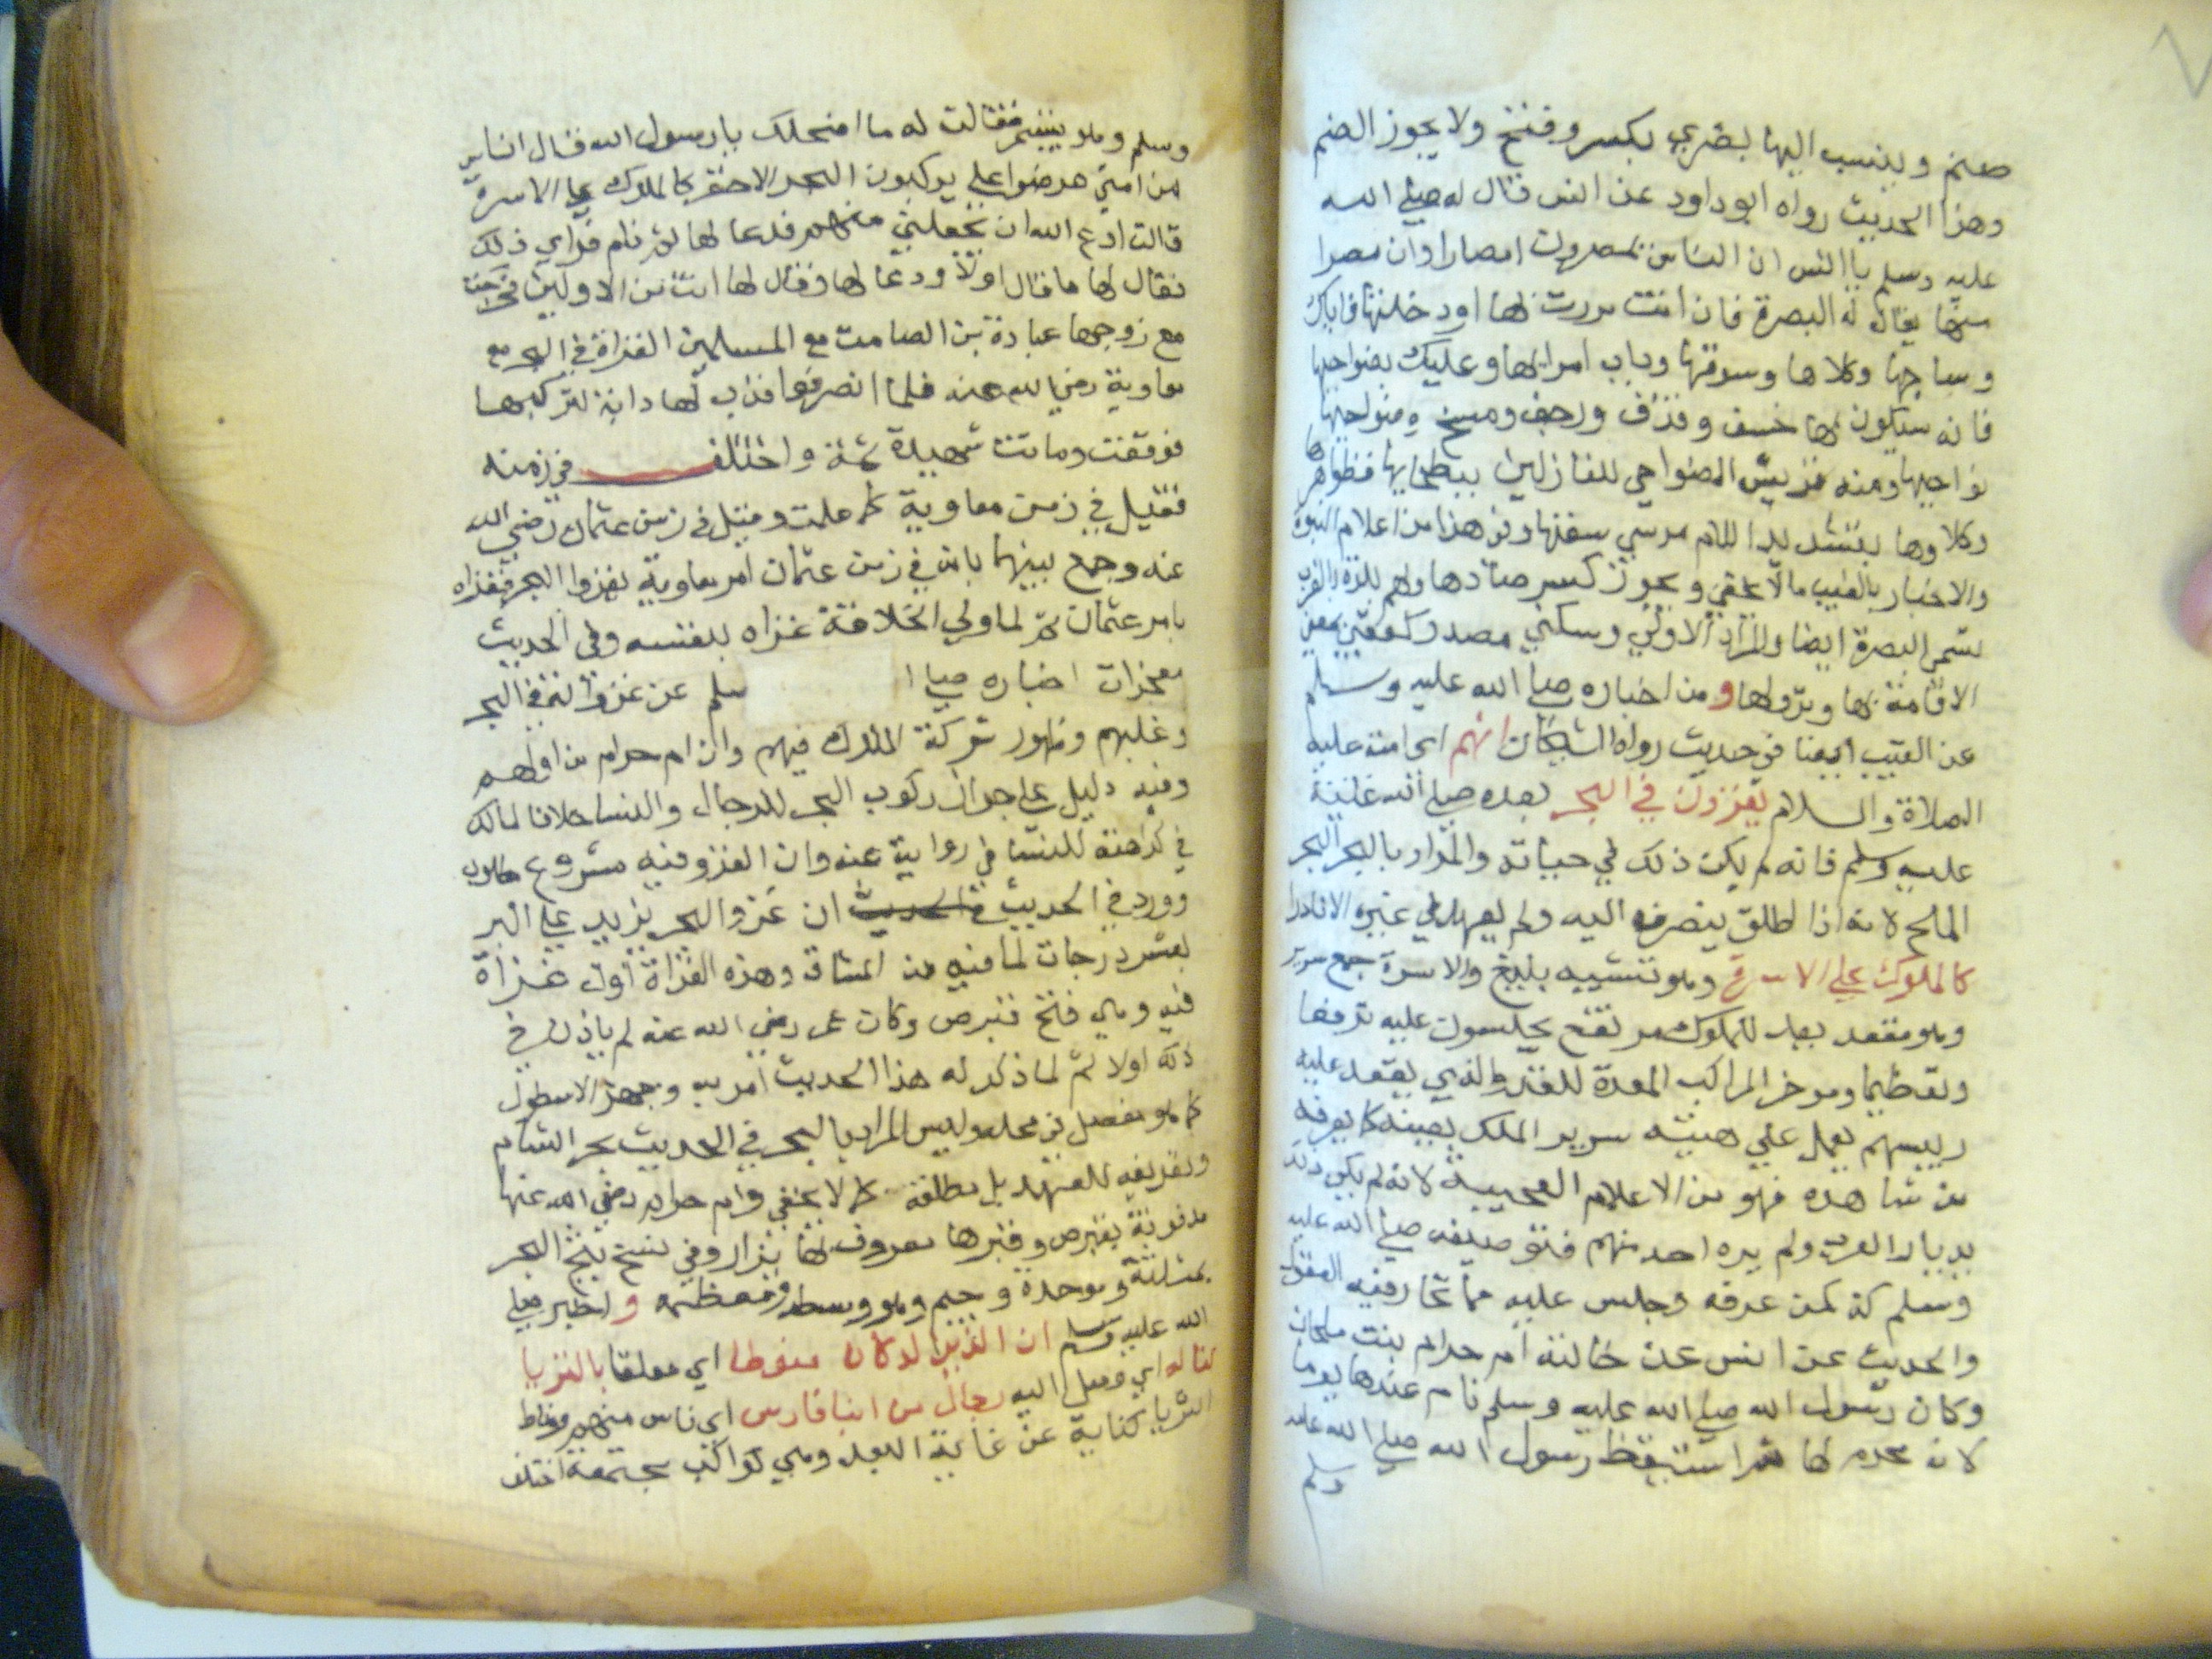 ضم وينسب اليها بصري بكسر وفتح ولا يجوز الضم
وهذا الحديث رواه ابو داود عن انس قال له صلى الله
عليه وسلم يا انس ان الناس يمصرون امصارا وان مصرا
منها يقال له البصرة فان انت مررت بها او دخلتها فاياك
وسباخها وكلاها وسوقها وباب امرايها وعليك بضواحيها
فانه سيكون بها خسف وقذف ورجف ومسخ وضواحيها
نواحيها ومنه قريش الضواحي للنازلين ببطحايها فظواهرها
وكلاوها بتشديد اللام مرسي سفنها وفي هذا من اعلام النبوة
والاخبار بالغيب ما لا يخفي ويجوز كسر صادها
تسمي البصرة ايضا والمراد الاولي وسكني مصدر كعقبي بمعني
الاقامة بها ونزولها ومن اخباره صلى الله عليه وسلم
عن الغيب ايضا في حديث رواه الشيخان انهم اي امته عليه
الصلاة والسلام يغزون في البحر بعده صلى الله
عليه وسلم فانه لم يكن ذلك في حياته والمراد بالبحر البحر
الملح لانه اذا اطلق ينصرف اليه ولم يعهد في غيره الا نادرا
كالملوك على الاسرة وهو تشبيه بليغ والاسرة جمع سرير
وهو مقعد يعد للملوك مرتفع يجلسون عليه ترفعا
وتعظيما وموخر المراكب المعدة للغزو الذي يقعد عليه
رييسهم يعمل علي هيئة سرير الملك بعينه كا يعرفه
من شاهده فهو من الاعلام العجيبة لانه لم يكن ذلك
بديار العرب ولم يره احد منهم فتوصيفه صلى الله عليه
وسلم له كمن عرفه وجلس عليه مما تحار فيه العقول
والحديث عن انس عن خالته ام حرام بنت ملحان
وكان رسول الله صلى الله عليه وسلم نام عندها يوما
لانه محرم لها ثم استيقظ رسول الله صلى الله عليه
وسلم
وسلم وهو يتبسم فقالت له ما اضحكك يا رسول الله فقال اناس
من امتي عرضوا علي يركبون البحر الاخضر كالملوك على الاسرة
قالت ادع الله ان يجعلني منهم فدعا لها ثم نام فراي ذلك
فقال لها ما قال اولا ودعا لها وقال لها انت من الاولين فخرجت
مع زوجها عبادة بن الصامت مع المسلمين الغزاة في البحر مع
معاوية رضي الله عنه فلما انصرفوا قرب لها دابة لتركبها
فوقعت وماتت شهيدة ثمة واختلف في زمنه
فقيل في زمن معاوية كما علمت وقيل في زمن عثمان رضي الله
عنه وجمع بينهما بانه في زمن عثمان امر معاوية بغزو البحر فغزاه
بامر عثمان ثم لما ولي الخلافة غزاه بنفسه وفي الحديث
معجزات اخباره صلي ا سلم عن غزو امته في البحر
وغلبهم وظهور شوكة الملوك فيهم وان ام حرام من اولهم
وفيه دليل علي جواز ركوب البحر للرجال والنسا خلافا لمالك
في كراهته للنسا في رواية عنه وان الغزو فيه مشروع
وورد في الحديث في الحديث ان غزو البحر يزيد على البر
بعشر درجات لما فيه من المشاق وهذه الغزاة اول غزاة
فيه وهي فتح قبرص وكان عمر رضي الله عنه لم ياذن في
ذلك اولا ثم لما ذكر له هذا الحديث امر به وجهز الاسطول
كما هو مفصل في محله وليس المراد بالبحر في الحديث بحر الشام
وتعريفه للعهد بل مطلقه كما لا يخفي وام حرام رضي الله عنها
مدفونة بقبرص وقبرها معروف بها يزار وفي نسخ ثبج البحر
بمثلثة وموحدة وجيم وهو وسطه ومعظمه واخبر صلي
الله عليه وسلم ان الدين لو كان منوطا اي معلقا بالثريا
لناله اي وصل اليه رجال من ابنا فارس اي ناس منهم
الثريا كناية عن غاية البعد وهي كواكب مجتمعة اختلف